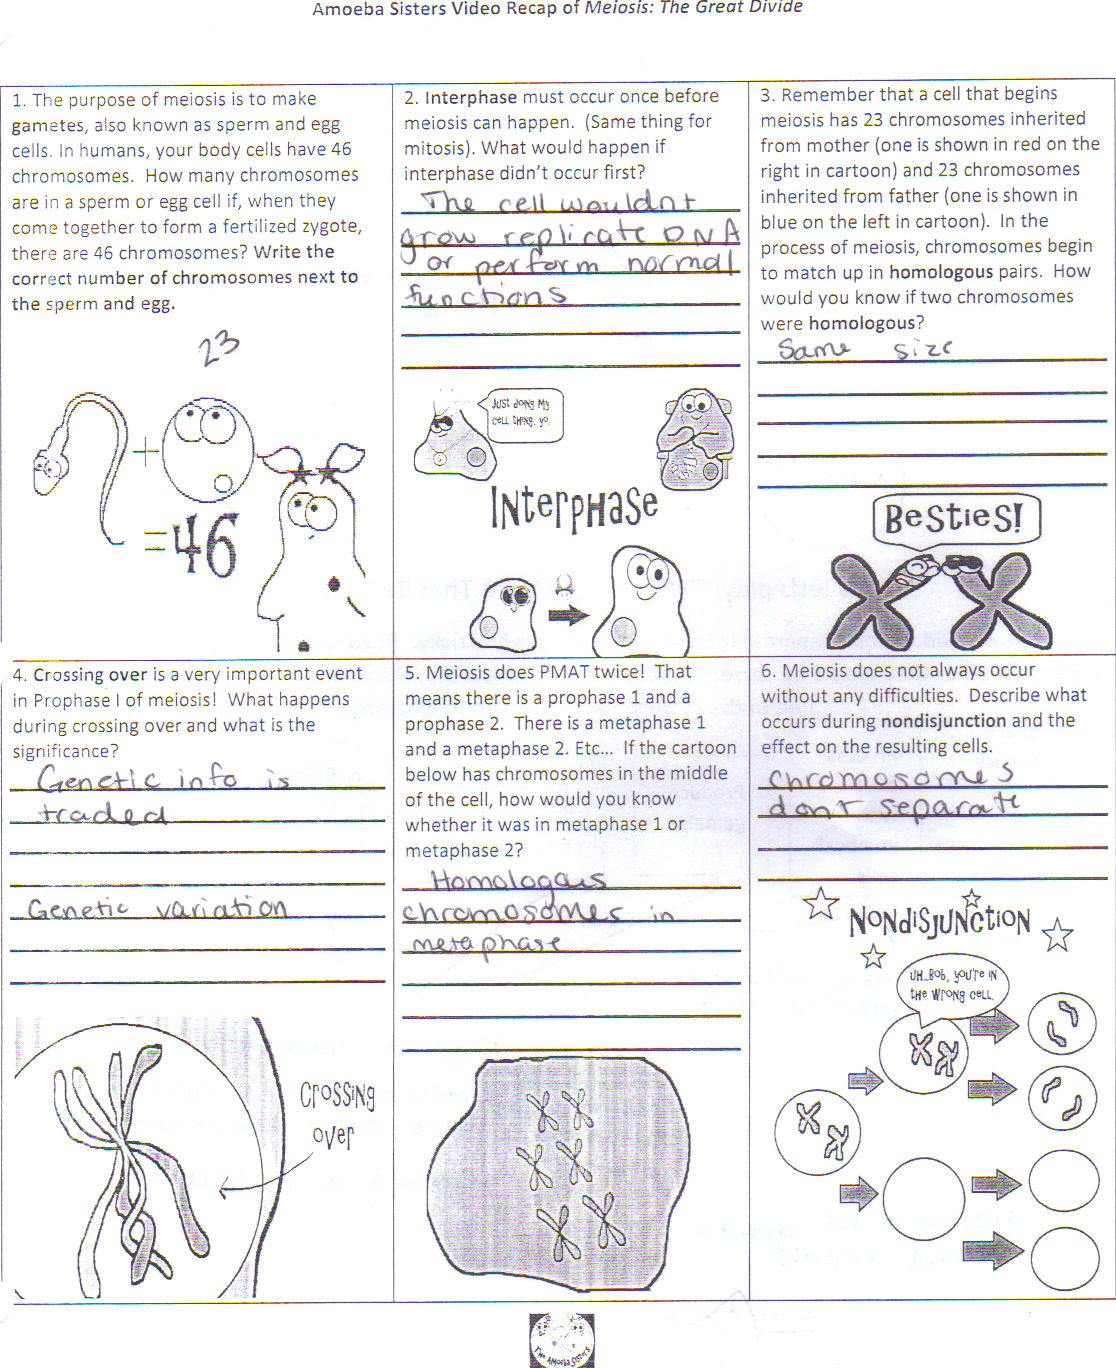 Amoeba Sisters Video Recap of Meiosis: The Great Divide
1. The purpose of meiosis is to make
gametes, also known as sperm and egg
cells. In humans, your body cells have 46
chromosomes. How many chromosomes
are in a sperm or egg cell if, when they
come together to form a fertilized zygote,
there are 46 chromosomes? Write the
correct number of chromosomes next to
the sperm and egg.
23
+
=46
2. Interphase must occur once before
meiosis can happen. (Same thing for
mitosis). What would happen if
interphase didn't occur first?
The cell wouldnt
grow replicate DNA
or perform normal
functions
Just doing my
cell thing, yo.
Interphase
3. Remember that a cell that begins
meiosis has 23 chromosomes inherited
from mother (one is shown in red on the
right in cartoon) and 23 chromosomes
inherited from father (one is shown in
blue on the left in cartoon). In the
process of meiosis, chromosomes begin
to match up in homologous pairs. How
would you know if two chromosomes
were homologous?
Same size
Besties!
4. Crossing over is a very important event
in Prophase I of meiosis! What happens
during crossing over and what is the
significance?
Genetic info is
traded
Genetic variation
Crossing
over
5. Meiosis does PMAT twice! That
means there is a prophase 1 and a
prophase 2. There is a metaphase 1
and a metaphase 2. Etc... If the cartoon
below has chromosomes in the middle
of the cell, how would you know
whether it was in metaphase 1 or
metaphase 2?
Homologous
chromosomes in
metaphase
6. Meiosis does not always occur
without any difficulties. Describe what
occurs during nondisjunction and the
effect on the resulting cells.
chromosomes
dont separate
Nondisjunction
Uh..Bob, you're in
the wrong cell.
The Amoeba Sisters